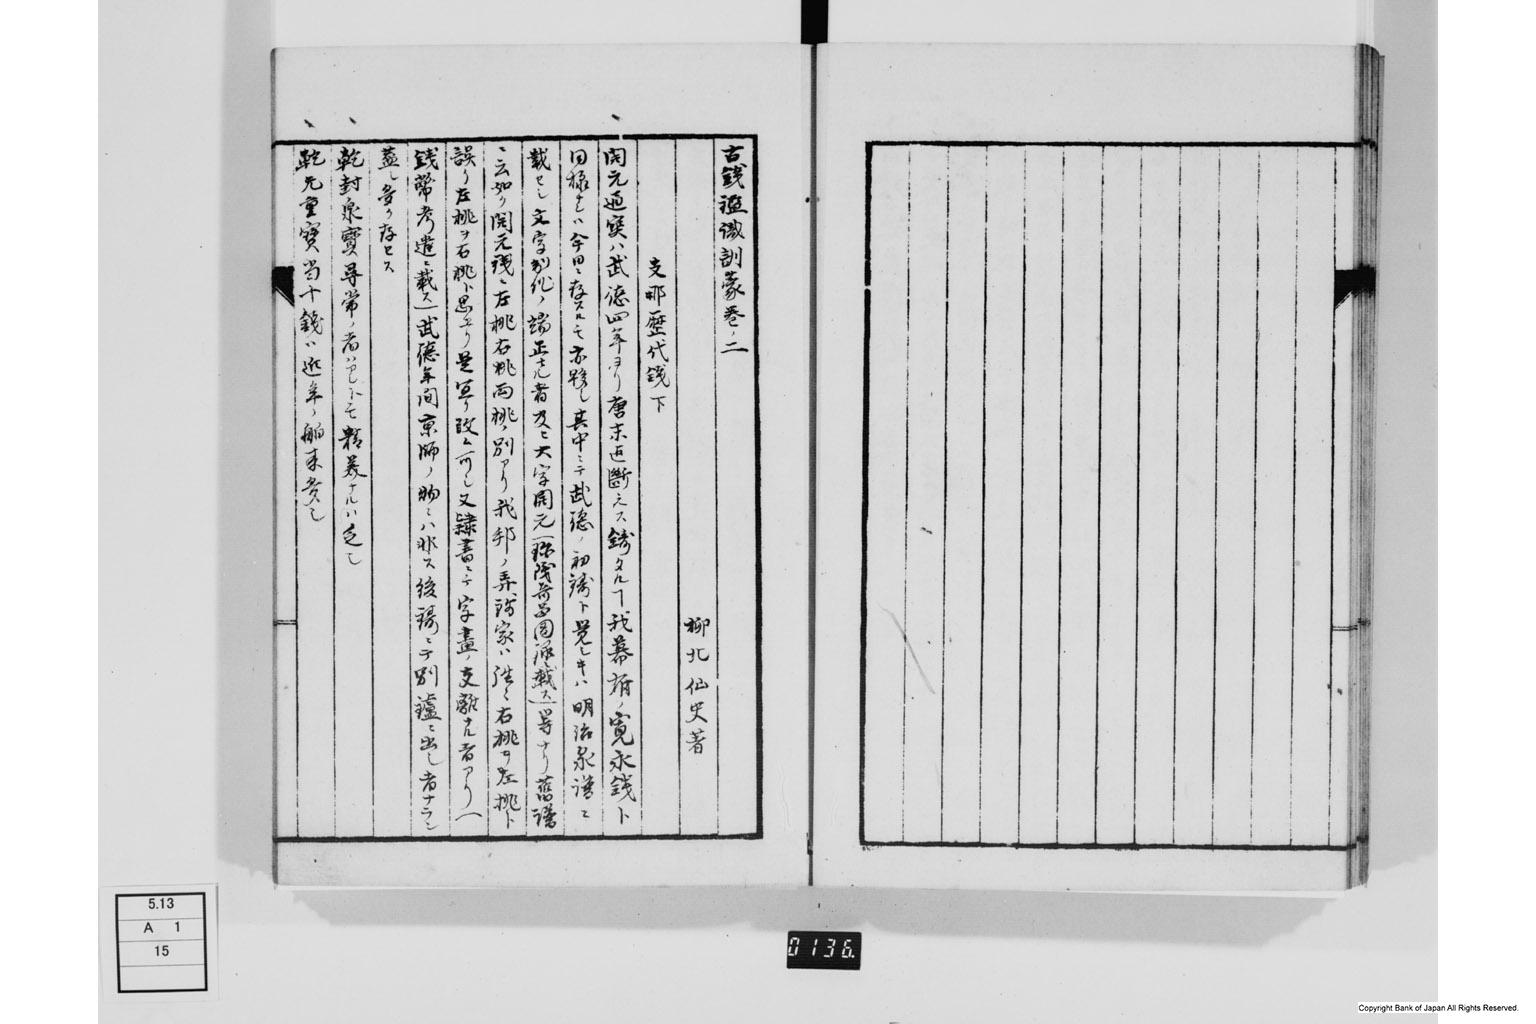 古銭鑑識訓蒙巻ノ二
柳北仙史著
支那歴代銭下
開元通宝ハ武徳四年ヨリ唐末迄断エス鋳タルヿ我幕府ノ寛永銭ト
同様ナレハ今田ニ存スルモ亦夥シ其中ニテ武徳ノ初鋳ト覚シキハ明治泉譜ニ
載セシ文字別伀ノ端正ナル者及ヒ大字開元等ナリ旧譜
ニ云如ク開元銭ニ左挑右挑両挑ノ別アリ我邦ノ弄銭家ハ往々右挑ヲ左挑ト
誤リ左挑ヲ右挑ト思ヘリ是宜ク改ム可シ又隷書ニテ字畫ノ支離ナル者アリ
銭幣考遺ニ載ス武徳年間京師ノ物ニハ非ス後鋳ニテ別爐ニ出シ者ナラン
蓋シ多ク存セス
乾封泉寶尋常ノ者ハ多シト雖モ精美ナルハ乏シ
乾元重寶当十銭ハ近年ノ舶来多シ
5.13
A 1
15
0136.
Copyright Bank of Japan All Rights Reserved.